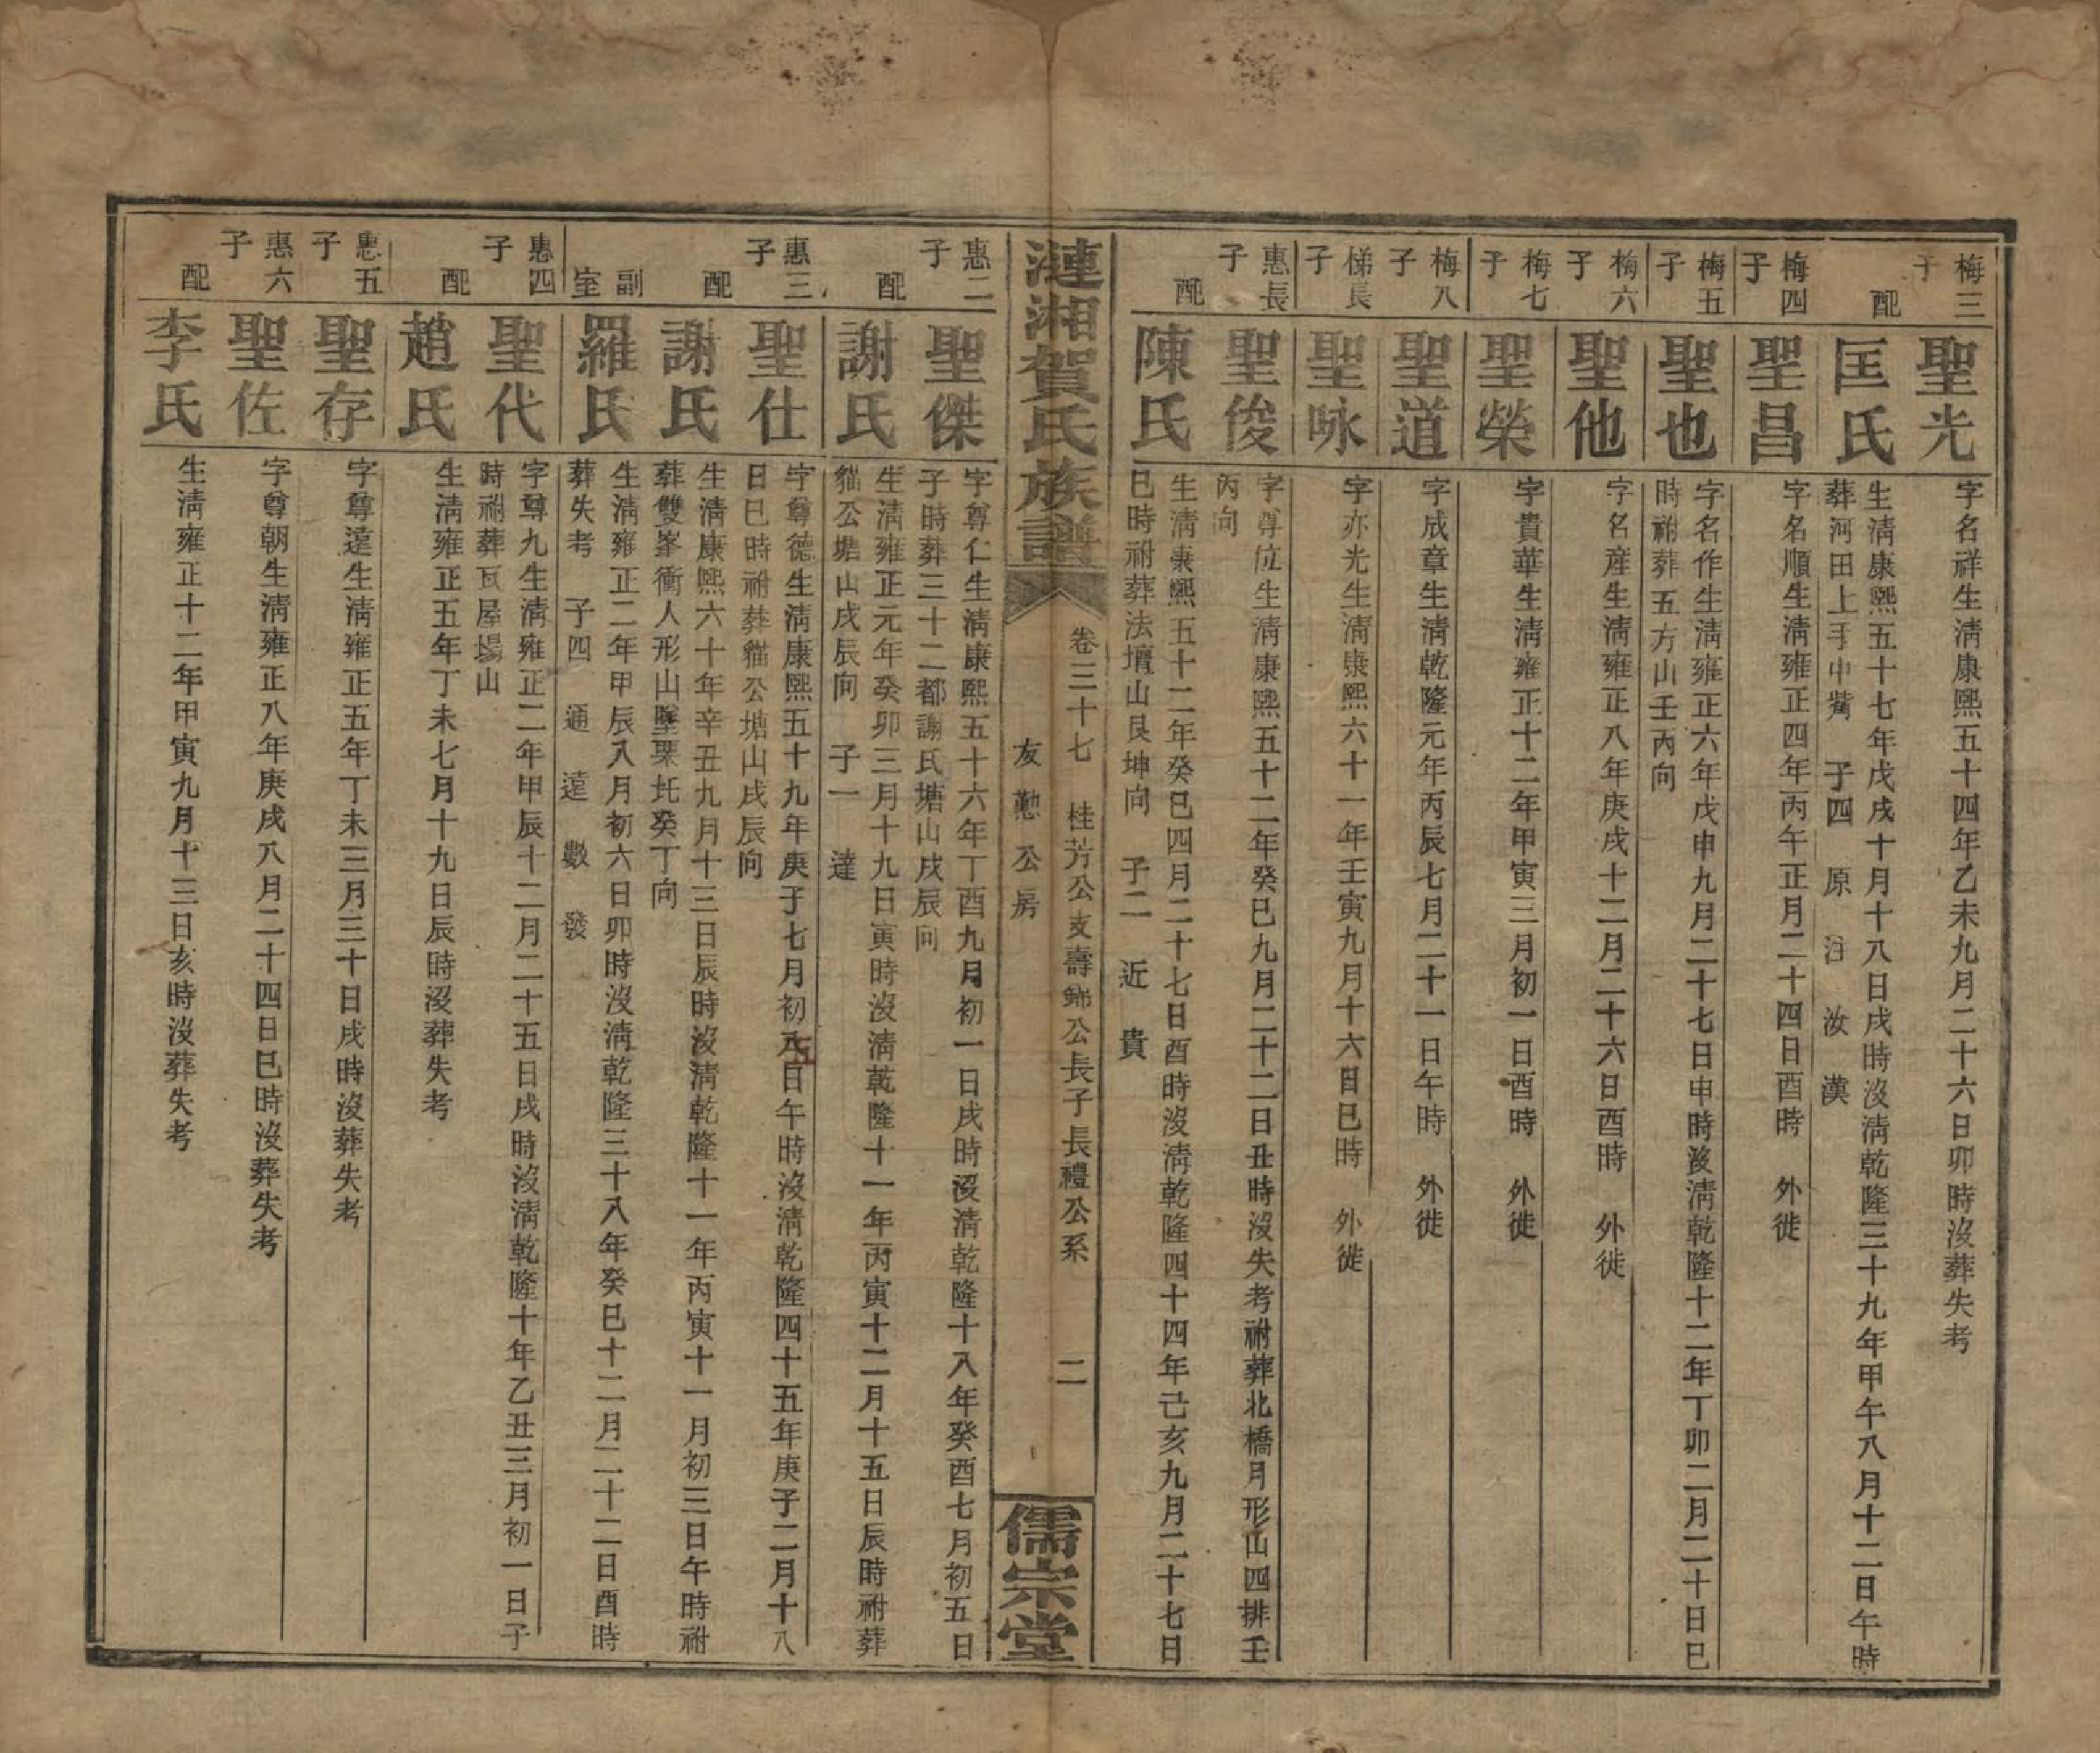 梅三子
聖光
字名祥生淸康熙五十四年乙未九月二十六日卯時沒葬失考
配
匡氏
生淸康熙五十七年戊戌十月十八日戌時沒淸乾隆三十九年甲午八月十二日午時
葬河田上手中觜 子四 原 汪 汝 漢
梅四子
聖昌
字名順生淸雍正四年丙午正月二十四日酉時 外徙
梅五子
聖也
字名作生淸雍正六年戊申九月二十七日申時沒淸乾隆十二年丁卯二月二十日巳
時祔葬五方山壬丙向
梅六子
聖他
字名產生淸雍正八年庚戌十二月二十六日酉時 外徙
梅七子
聖榮
字貴華生淸雍正十二年甲寅三月初一日酉時 外徙
梅八子
聖道
字成章生淸乾隆元年丙辰七月二十一日午時 外徙
梯長子
聖咏
字亦光生淸康熙六十一年壬寅九月十六日巳時 外徙
惠長子
聖俊
字尊位生淸康熙五十二年癸巳九月二十二日丑時沒失考祔葬北橋月形山四排壬
丙向
配
陳氏
生淸康熙五十二年癸巳四月二十七日酉時沒淸乾隆四十四年己亥九月二十七日
巳時祔葬法壇山艮坤向 子二 近 貴
漣湘賀氏族譜
卷三十七 桂芳公支壽錦公長子長禮公系
友懃公房
二
儒宗堂
惠二子
聖傑
字尊仁生淸康熙五十六年丁酉九月初一日戌時沒淸乾隆十八年癸酉七月初五日
子時葬三十二都謝氏塘山戌辰向
配
謝氏
生淸雍正元年癸卯三月十九日寅時沒淸乾隆十一年丙寅十二月十五日辰時祔葬
貓公塘山戌辰向 子一 達
惠三子
聖仕
字尊德生淸康熙五十九年庚子七月初五日午時沒淸乾隆四十五年庚子二月十八
日巳時祔葬貓公塘山戌辰向
配
謝氏
生淸康熙六十年辛丑九月十三日辰時沒淸乾隆十一年丙寅十一月初三日午時祔
葬雙峯衝人形山墜栗圫癸丁向
副室
羅氏
生淸雍正二年甲辰八月初六日卯時沒淸乾隆三十八年癸巳十二月二十二日酉時
葬失考 子四 通 遠 數 發
惠四子
聖代
字尊九生淸雍正二年甲辰十二月二十五日戌時沒淸乾隆十年乙丑三月初一日子
時祔葬瓦屋場山
配
趙氏
生淸雍正五年丁未七月十九日辰時沒葬失考
惠五子
聖存
字尊遠生淸雍正五年丁未三月三十日戌時沒葬失考
惠六子
聖佐
字尊朝生淸雍正八年庚戌八月二十四日巳時沒葬失考
配
李氏
生淸雍正十二年甲寅九月十三日亥時沒葬失考